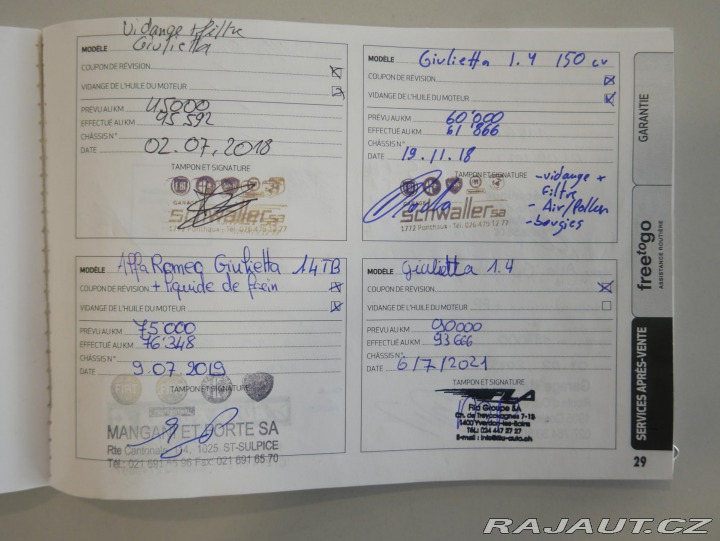 Vidange + filtre
MODÈLE Giulietta
COUPON DE RÉVISION
VIDANGE DE L'HUILE DU MOTEUR
PRÉVU AU KM 45000
EFFECTUÉ AU KM 45 592
CHÂSSIS N°
DATE 02.07.2018
TAMPON ET SIGNATURE
GARAGE
Schwaller SA
1772 Ponthaux - Tél. 026 475 12 77
MODÈLE Giulietta 1.4 150 cv
COUPON DE RÉVISION
VIDANGE DE L'HUILE DU MOTEUR
PRÉVU AU KM 60'000
EFFECTUÉ AU KM 61'866
CHÂSSIS N°
DATE 19.11.18
TAMPON ET SIGNATURE
- vidange +
filtre
- Air/Pollen
- bougies
Schwaller SA
1772 Ponthaux - Tél. 026 475 12 77
MODÈLE Alfa Romeo Giulietta 1.4 TB
COUPON DE RÉVISION + liquide de frein
VIDANGE DE L'HUILE DU MOTEUR
PRÉVU AU KM 75'000
EFFECTUÉ AU KM 76'348
CHÂSSIS N°
DATE 9.07.2019
TAMPON ET SIGNATURE
FIAT
MANGANI ET PORTE SA
Rte Cantonale 1025 ST-SULPICE
Tél.: 021 691 Fax: 021 691 65 70
MODÈLE giulietta 1.4
COUPON DE RÉVISION
VIDANGE DE L'HUILE DU MOTEUR
PRÉVU AU KM 90000
EFFECTUÉ AU KM 93666
CHÂSSIS N°
DATE 6/7/2021
TAMPON ET SIGNATURE
Groupe SA
Ch. de 7-15
1400 Yverdon-les-Bains
Tél.: 024 447 27 27
GARANTIE
freetogo
ASSISTANCE ROUTIÈRE
SERVICES APRÈS-VENTE
29
RAJAUT.CZ